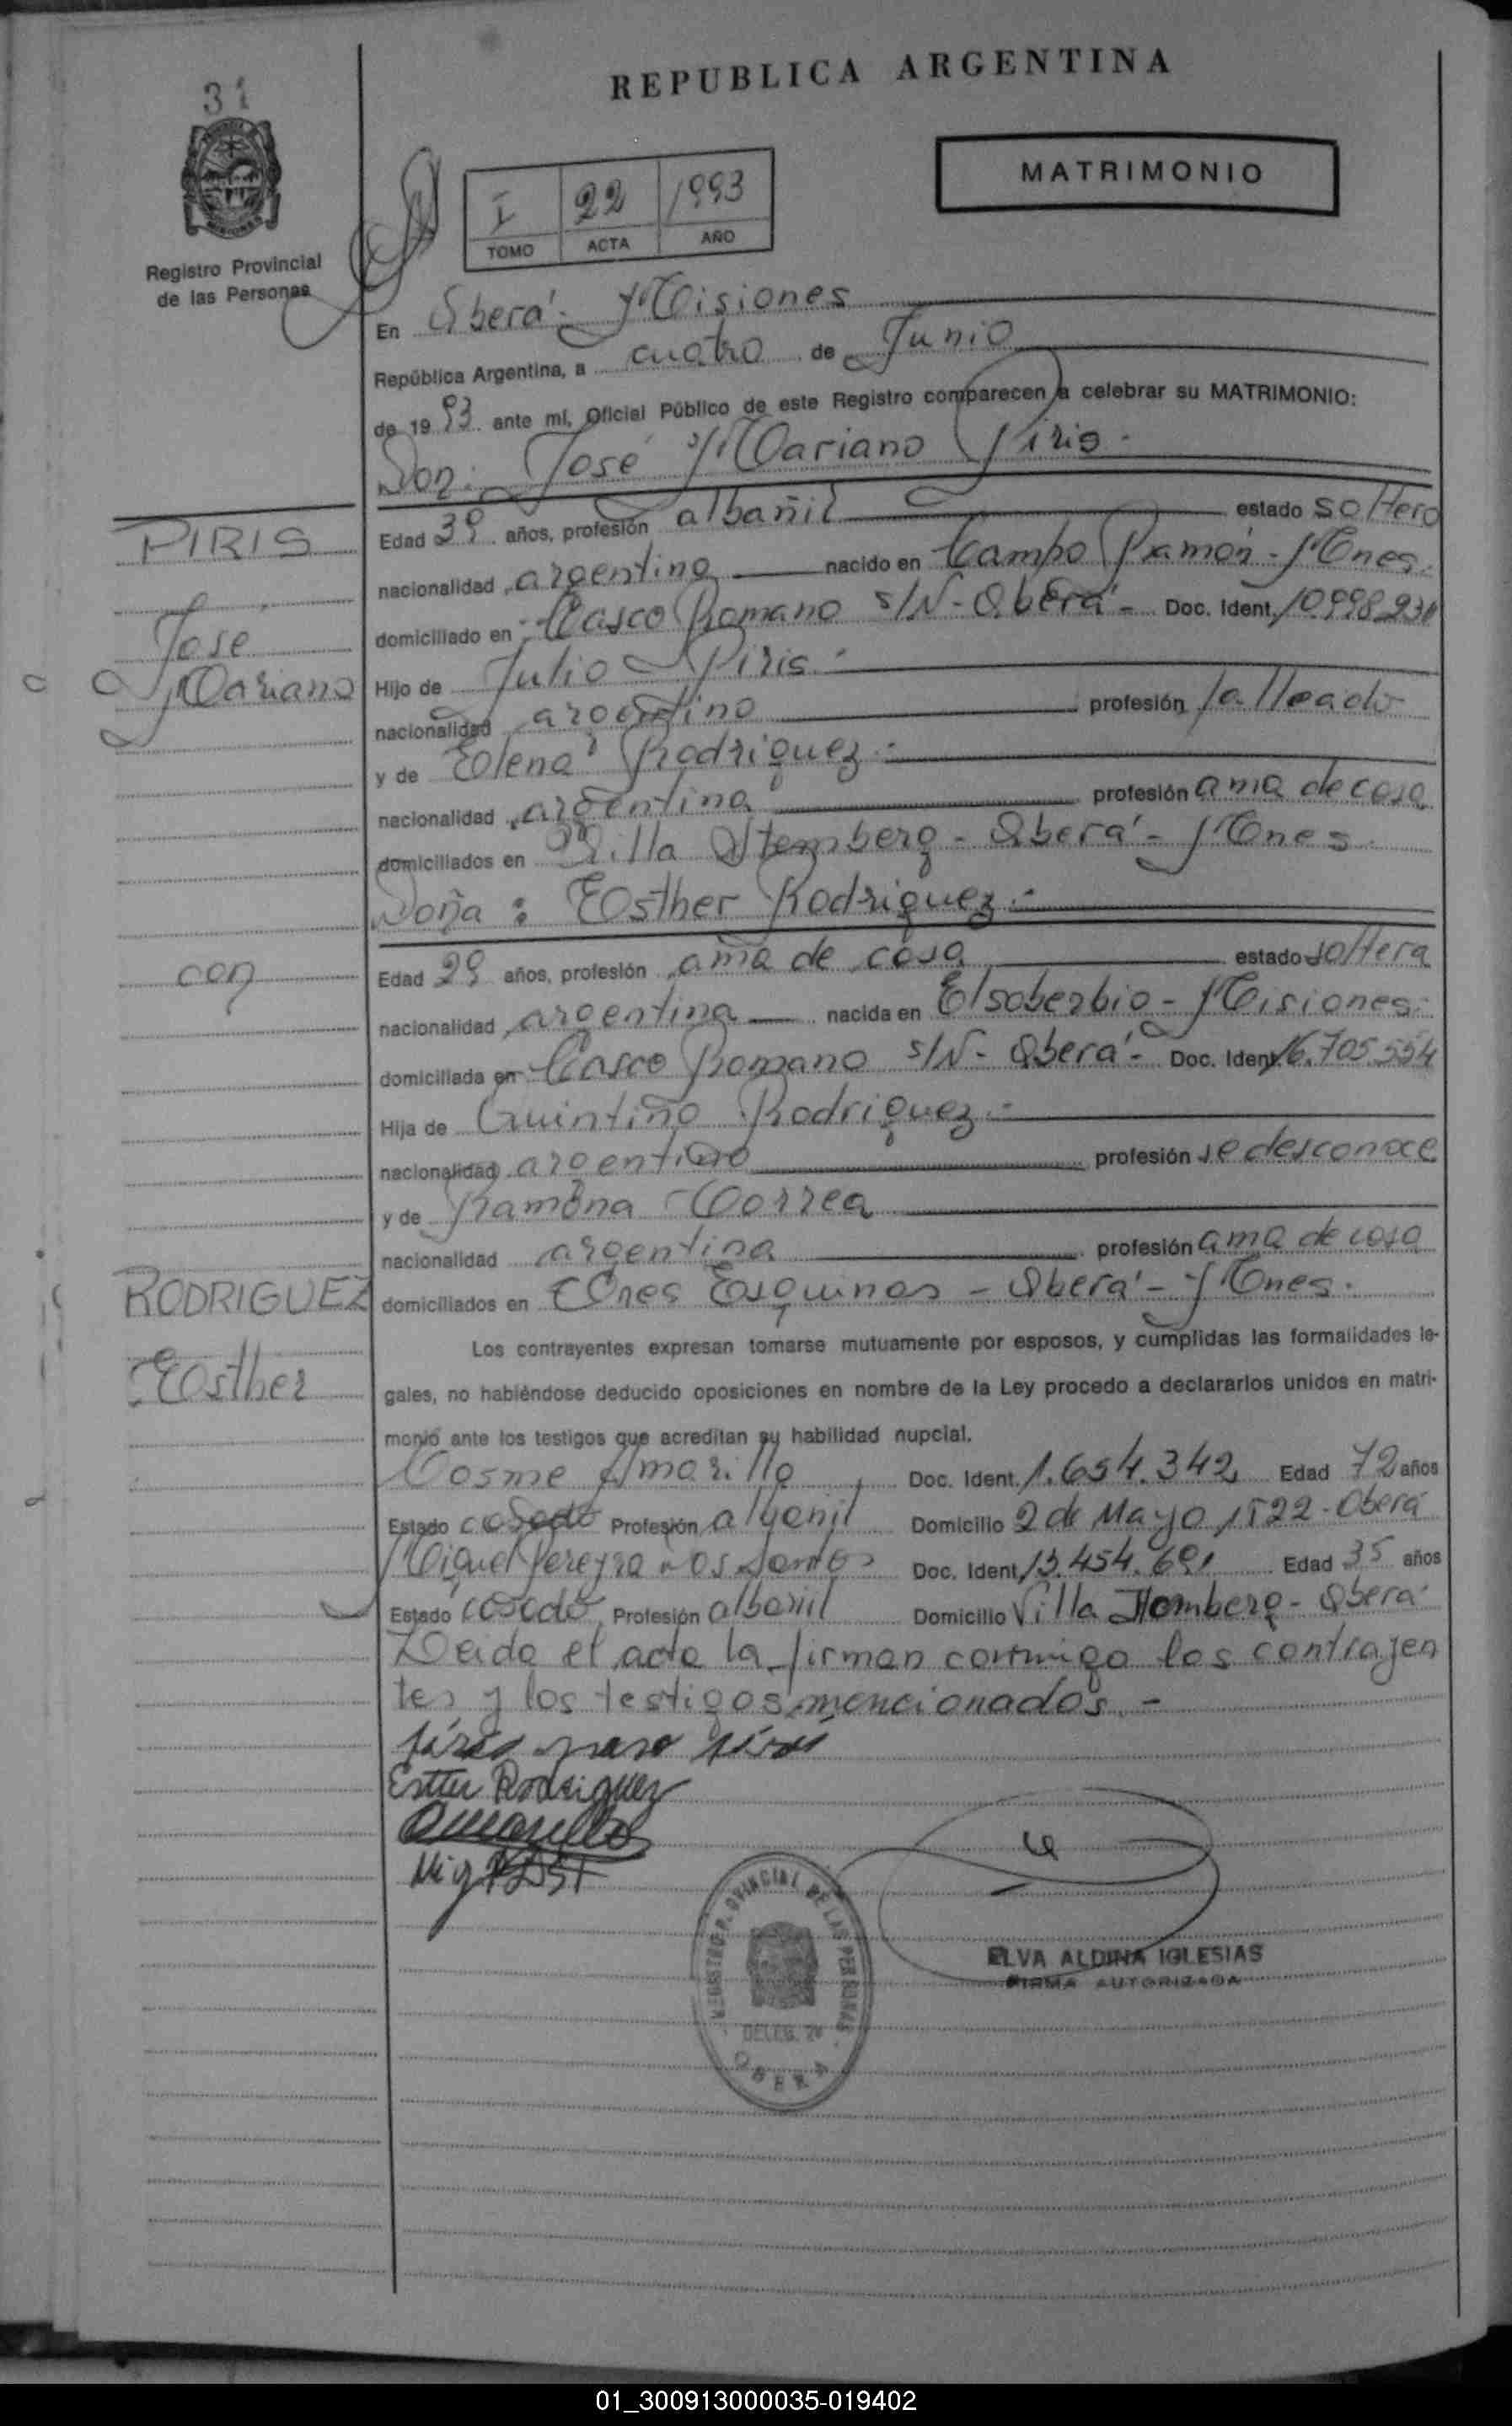 31
REPUBLICA ARGENTINA
MATRIMONIO
I 22 1993
TOMO ACTA AÑO
Registro Provincial
de las Personas
En Oberá - Misiones
República Argentina, a cuatro de Junio
de 1993 ante mí, Oficial Público de este Registro comparecen a celebrar su MATRIMONIO:
Don: José Mariano Piris.-
PIRIS
Edad 39 años, profesión albañil estado soltero
nacionalidad argentina nacido en Campo Ramón - Mnes.
domiciliado en Casco Romano s/N - Oberá - Doc. Ident. 10.998.931
José
Mariano
Hijo de Julio Piris.-
nacionalidad argentino profesión fallecido
y de Elena Rodriguez.-
nacionalidad argentina profesión ama de casa
domiciliados en Villa Stemberg - Oberá - Mnes.
Doña: Esther Rodriguez.-
con
Edad 29 años, profesión ama de casa estado soltera
nacionalidad argentina nacida en El soberbio - Misiones.
domiciliada en Casco Romano s/N - Oberá - Doc. Ident. 16.705.554
Hija de Quintino Rodriguez.-
nacionalidad argentino profesión se desconoce
y de Ramona Correa
nacionalidad argentina profesión ama de casa
RODRIGUEZ
Esther
domiciliados en Tres Esquinas - Oberá - Mnes.
Los contrayentes expresan tomarse mutuamente por esposos, y cumplidas las formalidades le-
gales, no habiéndose deducido oposiciones en nombre de la Ley procedo a declararlos unidos en matri-
monio ante los testigos que acreditan su habilidad nupcial.
Cosme Amarillo Doc. Ident. 1.654.342 Edad 72 años
Estado casado Profesión albañil Domicilio 2 de Mayo 1522 - Oberá
Miguel Pereyra Dos Santos Doc. Ident. 13.454.601 Edad 35 años
Estado casado Profesión albañil Domicilio Villa Stemberg - Oberá
Leida el acta la firman conmigo los contrayen
tes y los testigos mencionados.-
Esther Rodriguez
Amarillo
REGISTRO PROVINCIAL DE LAS PERSONAS
DELEG.
OBERA
ELVA ALDINA IGLESIAS
FIRMA AUTORIZADA
01_300913000035-019402